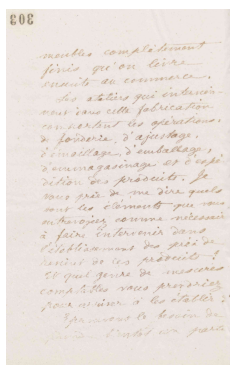 303
meubles complètement
finis qu'on livre
ensuite au commerce.
Les ateliers qui intervien-
nent dans cette fabrication
comportent les opérations
de fonderie, d'ajustage,
d'émaillage, d'emballage,
d'emmagasinage et d'expé
dition des produits. Je
vous prie de me dire quels
sont les éléments que vous
entrevoyez comme nécessaires
à faire intervenir dans
l'établissement des prix de
revient de ces produits ?
Et quel genre de mesures
comptables vous prendriez
pour arriver à les établir ?
le besoin de